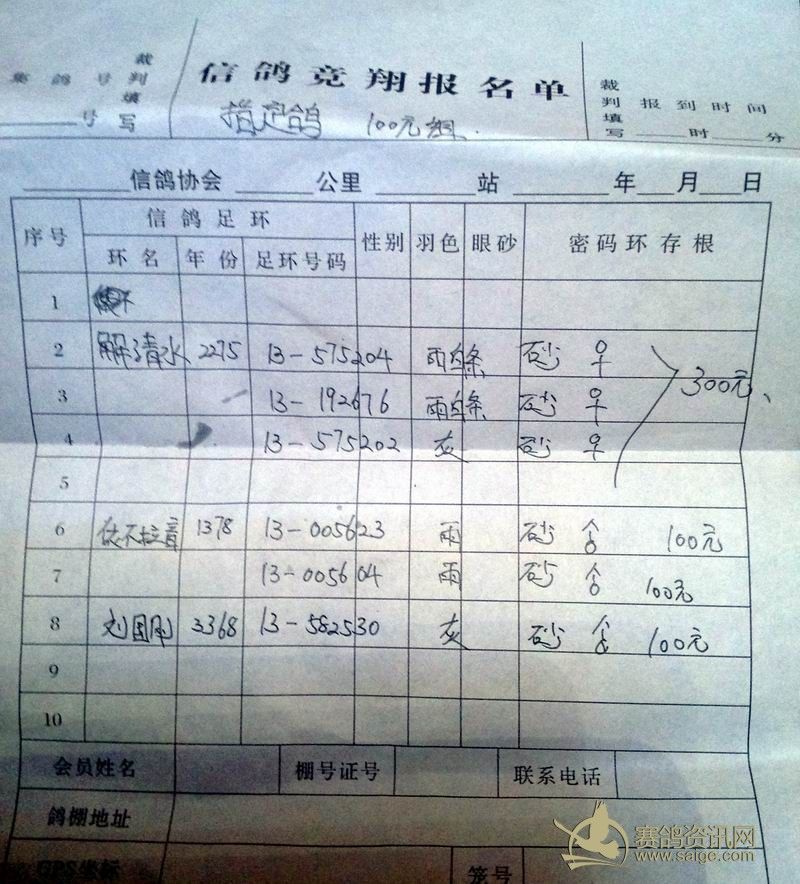 集鸽号 裁判填写
____号
信鸽竞翔报名单
指定鸽 100元组
裁判填写 报到时间
____时____分
____信鸽协会 ____公里 ____站 ____年__月__日
序号 信鸽足环 性别 羽色 眼砂 密码环存根
环名 年份 足环号码
1
2 解清水 2275 13-575204 雨白条 砂 ♀
3 13-192676 雨白条 砂 ♀ 300元
4 13-575202 灰 砂 ♀
5
6 1378 13-005623 雨 砂 100元
7 13-005604 雨 砂 100元
8 刘国刚 3368 13-582530 灰 砂 100元
9
10
会员姓名 棚号证号 联系电话
鸽棚地址
GPS坐标 笼号
赛鸽资讯网
www.saige.com